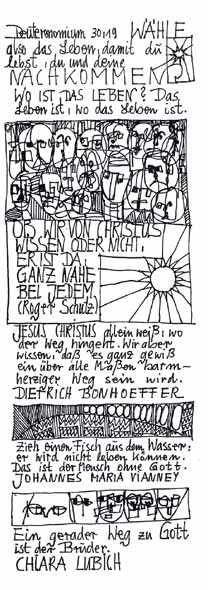 Deuteronomium 30,19 WÄHLE
also das Leben, damit du
lebst, du und deine
NACHKOMMEN
WO IST DAS LEBEN? Das
Leben ist, wo das Leben ist.
OB WIR VON CHRISTUS
WISSEN ODER NICHT,
ER IST DA,
GANZ NAHE
BEI JEDEM.
(Roger Schutz)
JESUS CHRISTUS allein weiß, wo
der Weg hingeht. Wir aber
wissen, daß es ganz gewiß
ein über alle Maßen barm-
herziger Weg sein wird.
DIETRICH BONHOEFFER
Zieh einen Fisch aus dem Wasser:
er wird nicht leben können.
Das ist der Mensch ohne Gott.
JOHANNES MARIA VIANNEY
Ein gerader Weg zu Gott
ist der Bruder.
CHIARA LUBICH